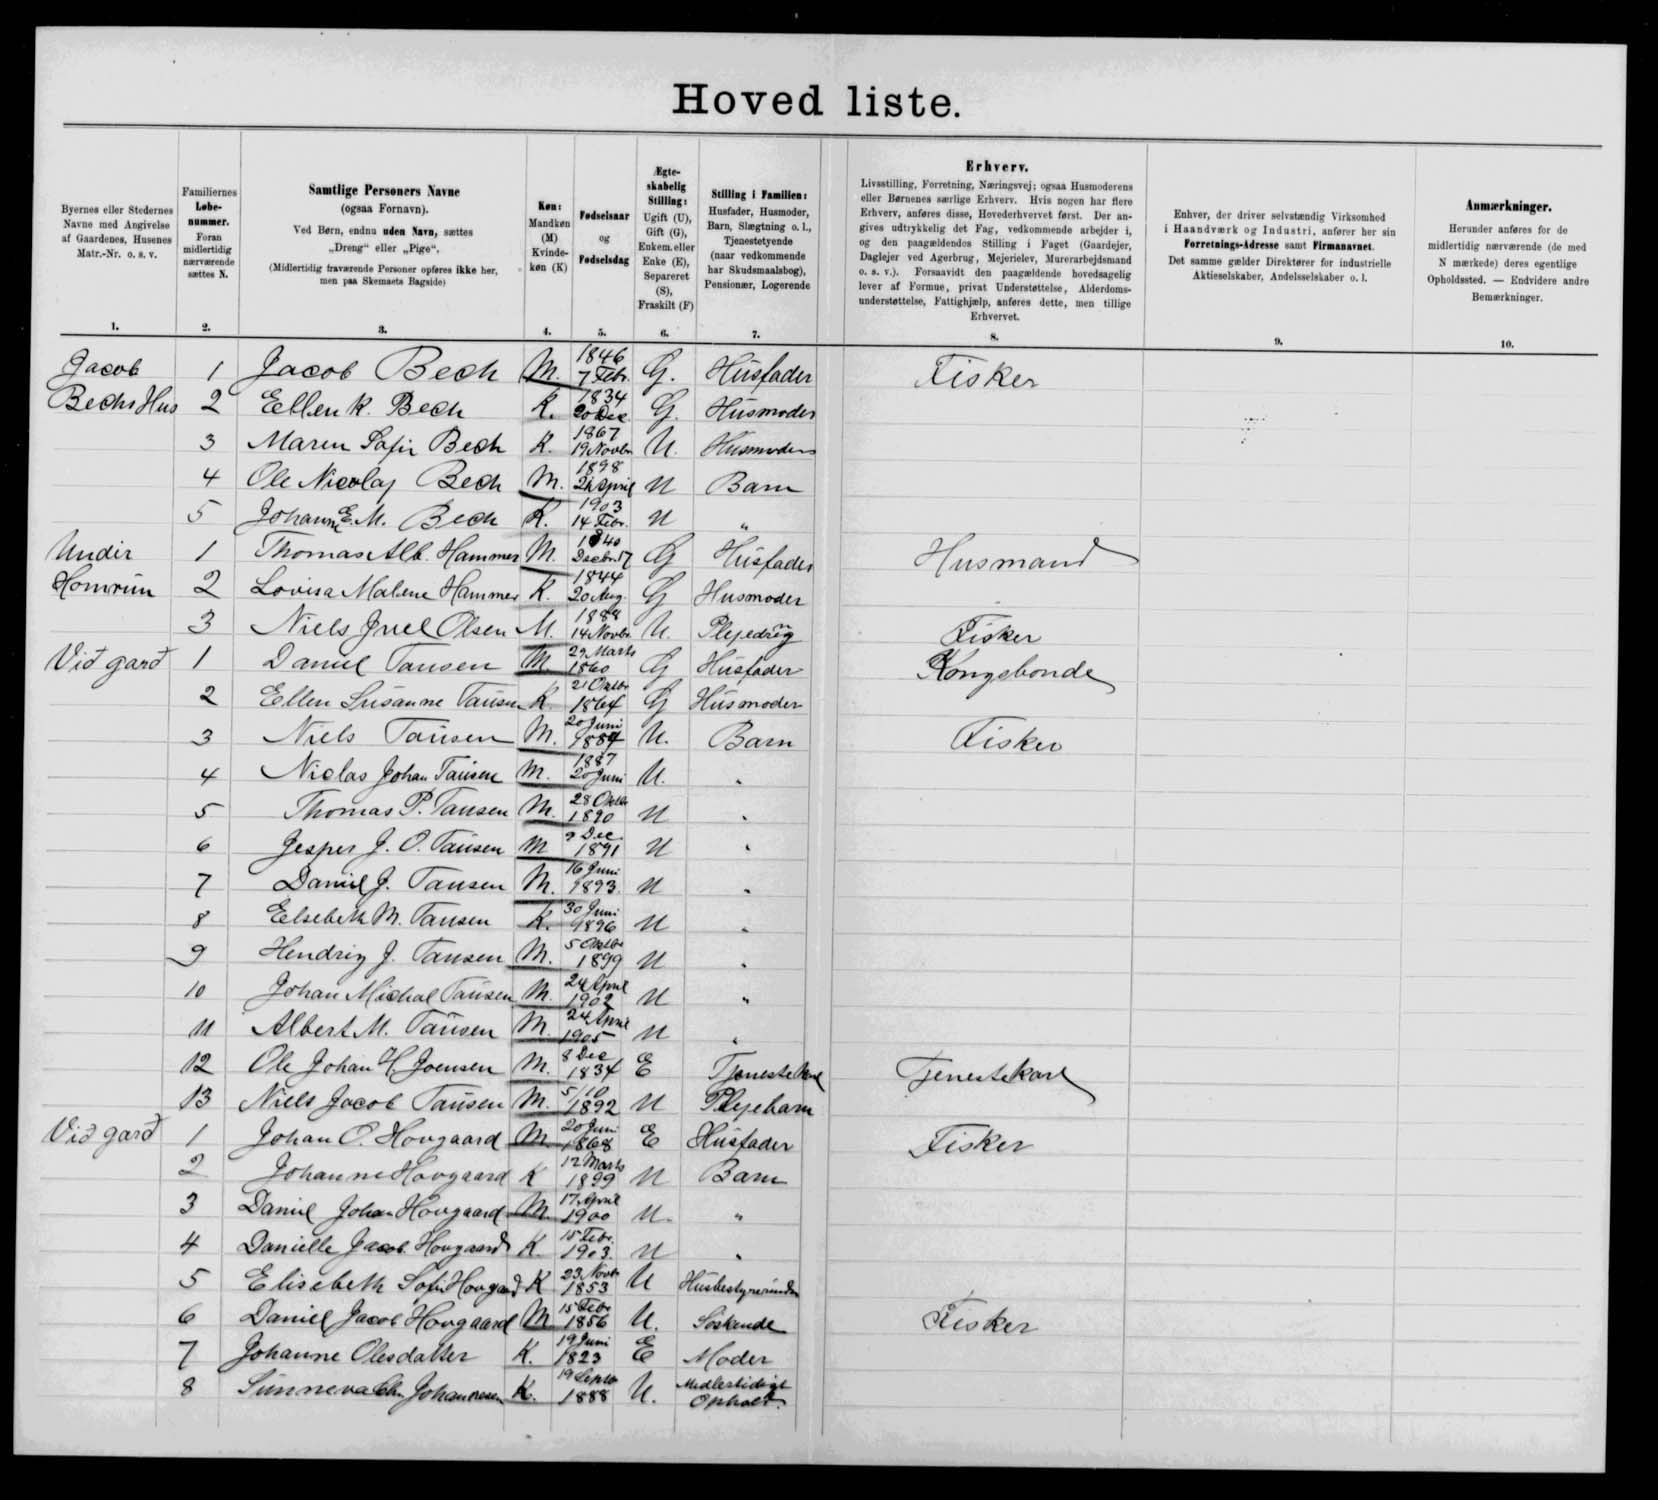 Hoved liste.
Byernes eller Stedernes Navne med Angivelse af Gaardenes, Husenes Matr.-Nr. o. s. v.
Familiernes Løbenummer. Foran midlertidig nærværende sættes N.
Samtlige Personers Navne (ogsaa Fornavn).
Ved Børn, endnu uden Navn, sættes „Dreng" eller „Pige".
(Midlertidig fraværende Personer opføres ikke her, men paa Skemaets Bagside)
Køn: Mandkøn (M) Kvindekøn (K)
Fødselsaar og Fødselsdag
Ægteskabelig Stilling: Ugift (U), Gift (G), Enkem. eller Enke (E), Separeret (S), Fraskilt (F)
Stilling i Familien: Husfader, Husmoder, Barn, Slægtning o. l., Tjenestetyende (naar vedkommende har Skudsmaalsbog), Pensionær, Logerende
Erhverv.
Livsstilling, Forretning, Næringsvej; ogsaa Husmoderens eller Børnenes særlige Erhverv. Hvis nogen har flere Erhverv, anføres disse, Hovederhvervet først. Der angives udtrykkelig det Fag, vedkommende arbejder i, og den paagældendes Stilling i Faget (Gaardejer, Daglejer ved Agerbrug, Mejerielev, Murerarbejdsmand o. s. v.). Forsaavidt den paagældende hovedsagelig lever af Formue, privat Understøttelse, Alderdomsunderstøttelse, Fattighjælp, anføres dette, men tillige Erhvervet.
Enhver, der driver selvstændig Virksomhed i Haandværk og Industri, anfører her sin Forretnings-Adresse samt Firmanavnet. Det samme gælder Direktører for industrielle Aktieselskaber, Andelsselskaber o. l.
Anmærkninger.
Herunder anføres for de midlertidig nærværende (de med N mærkede) deres egentlige Opholdssted. — Endvidere andre Bemærkninger.
1. 2. 3. 4. 5. 6. 7. 8. 9. 10.
Jacob 1 Jacob Bech M. 1846 7 Febr. G. Husfader Fisker
Bechs Hus 2 Ellen K. Bech K. 1834 20 Dec G. Husmoder
3 Maren Sofie Bech K. 1867 19 Novbr U. Husmoder
4 Ole Nicolaj Bech M. 1898 April U Barn
5 Johanne E. M. Bech K. 1903 14 Febr. U "
Undir 1 Thomas Alb. Hammer M. 1840 Decbr. 17 G Husfader Husmand
Homrum 2 Lovisa Malene Hammer K. 1844 20 Aug. G Husmoder
3 Niels Juel Olsen M. 1888 14 Novbr. U. Plejedreng Fisker
Við garð 1 Daniel Tausen M. 29 Marts 1860 G Husfader Kongsbonde
2 Ellen Susanne Tausen K. 21 Oktbr 1864 G Husmoder
3 Niels Tausen M. 20 Juni 1884 U. Barn Fisker
4 Niclas Johan Tausen M. 1887 20 Juni U. "
5 Thomas P. Tausen M. 28 Oktbr 1890 U "
6 Jesper J. O. Tausen M 9 Dec. 1891 U "
7 Daniel J. Tausen M. 16 Juni 1893. U "
8 Elsebeth M. Tausen K. 30 Juni 1896 U "
9 Hendrig J. Tausen M. 5 Oktbr 1899 U "
10 Johan Michal Tausen M. 24 April 1902 U "
11 Albert M. Tausen M. 24 April 1905 U "
12 Ole Johan H. Joensen M. 8 Dec 1834 E Tjenestekarl Tjenestekarl
13 Niels Jacob Tausen M. 5/10 1892 U Plejebarn
Við garð 1 Johan O. Hovgaard M. 20 Juni 1868 E Husfader Fisker
2 Johanne Hovgaard K 12 Marts 1899 U Barn
3 Daniel Johan Hovgaard M. 17 April 1900 U. "
4 Danielle Jacob. Hovgaard K. 15 Febr. 1903. U "
5 Elisebeth Sofie Hovgaard K 23 Novbr 1853 U Husbestyrerinde
6 Daniel Jacob Hovgaard M 15 Febr 1856 U. Søskende Fisker
7 Johanne Olesdatter K. 19 Juni 1823 E Moder
8 Sunneva Chr. Johannesen K. 19 Septbr 1888 U. Midlertidigt Ophold.